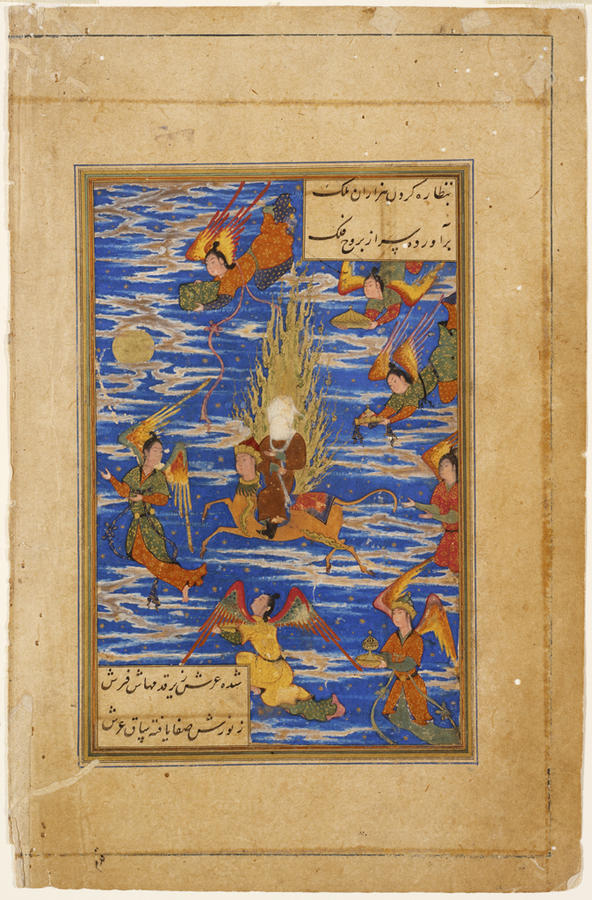 بنظاره کردن هزاران ملک
برآورده سر از بروج فلک
شده عرش زیر قدمهاش فرش
ز نورش صفا یافته ساق عرش